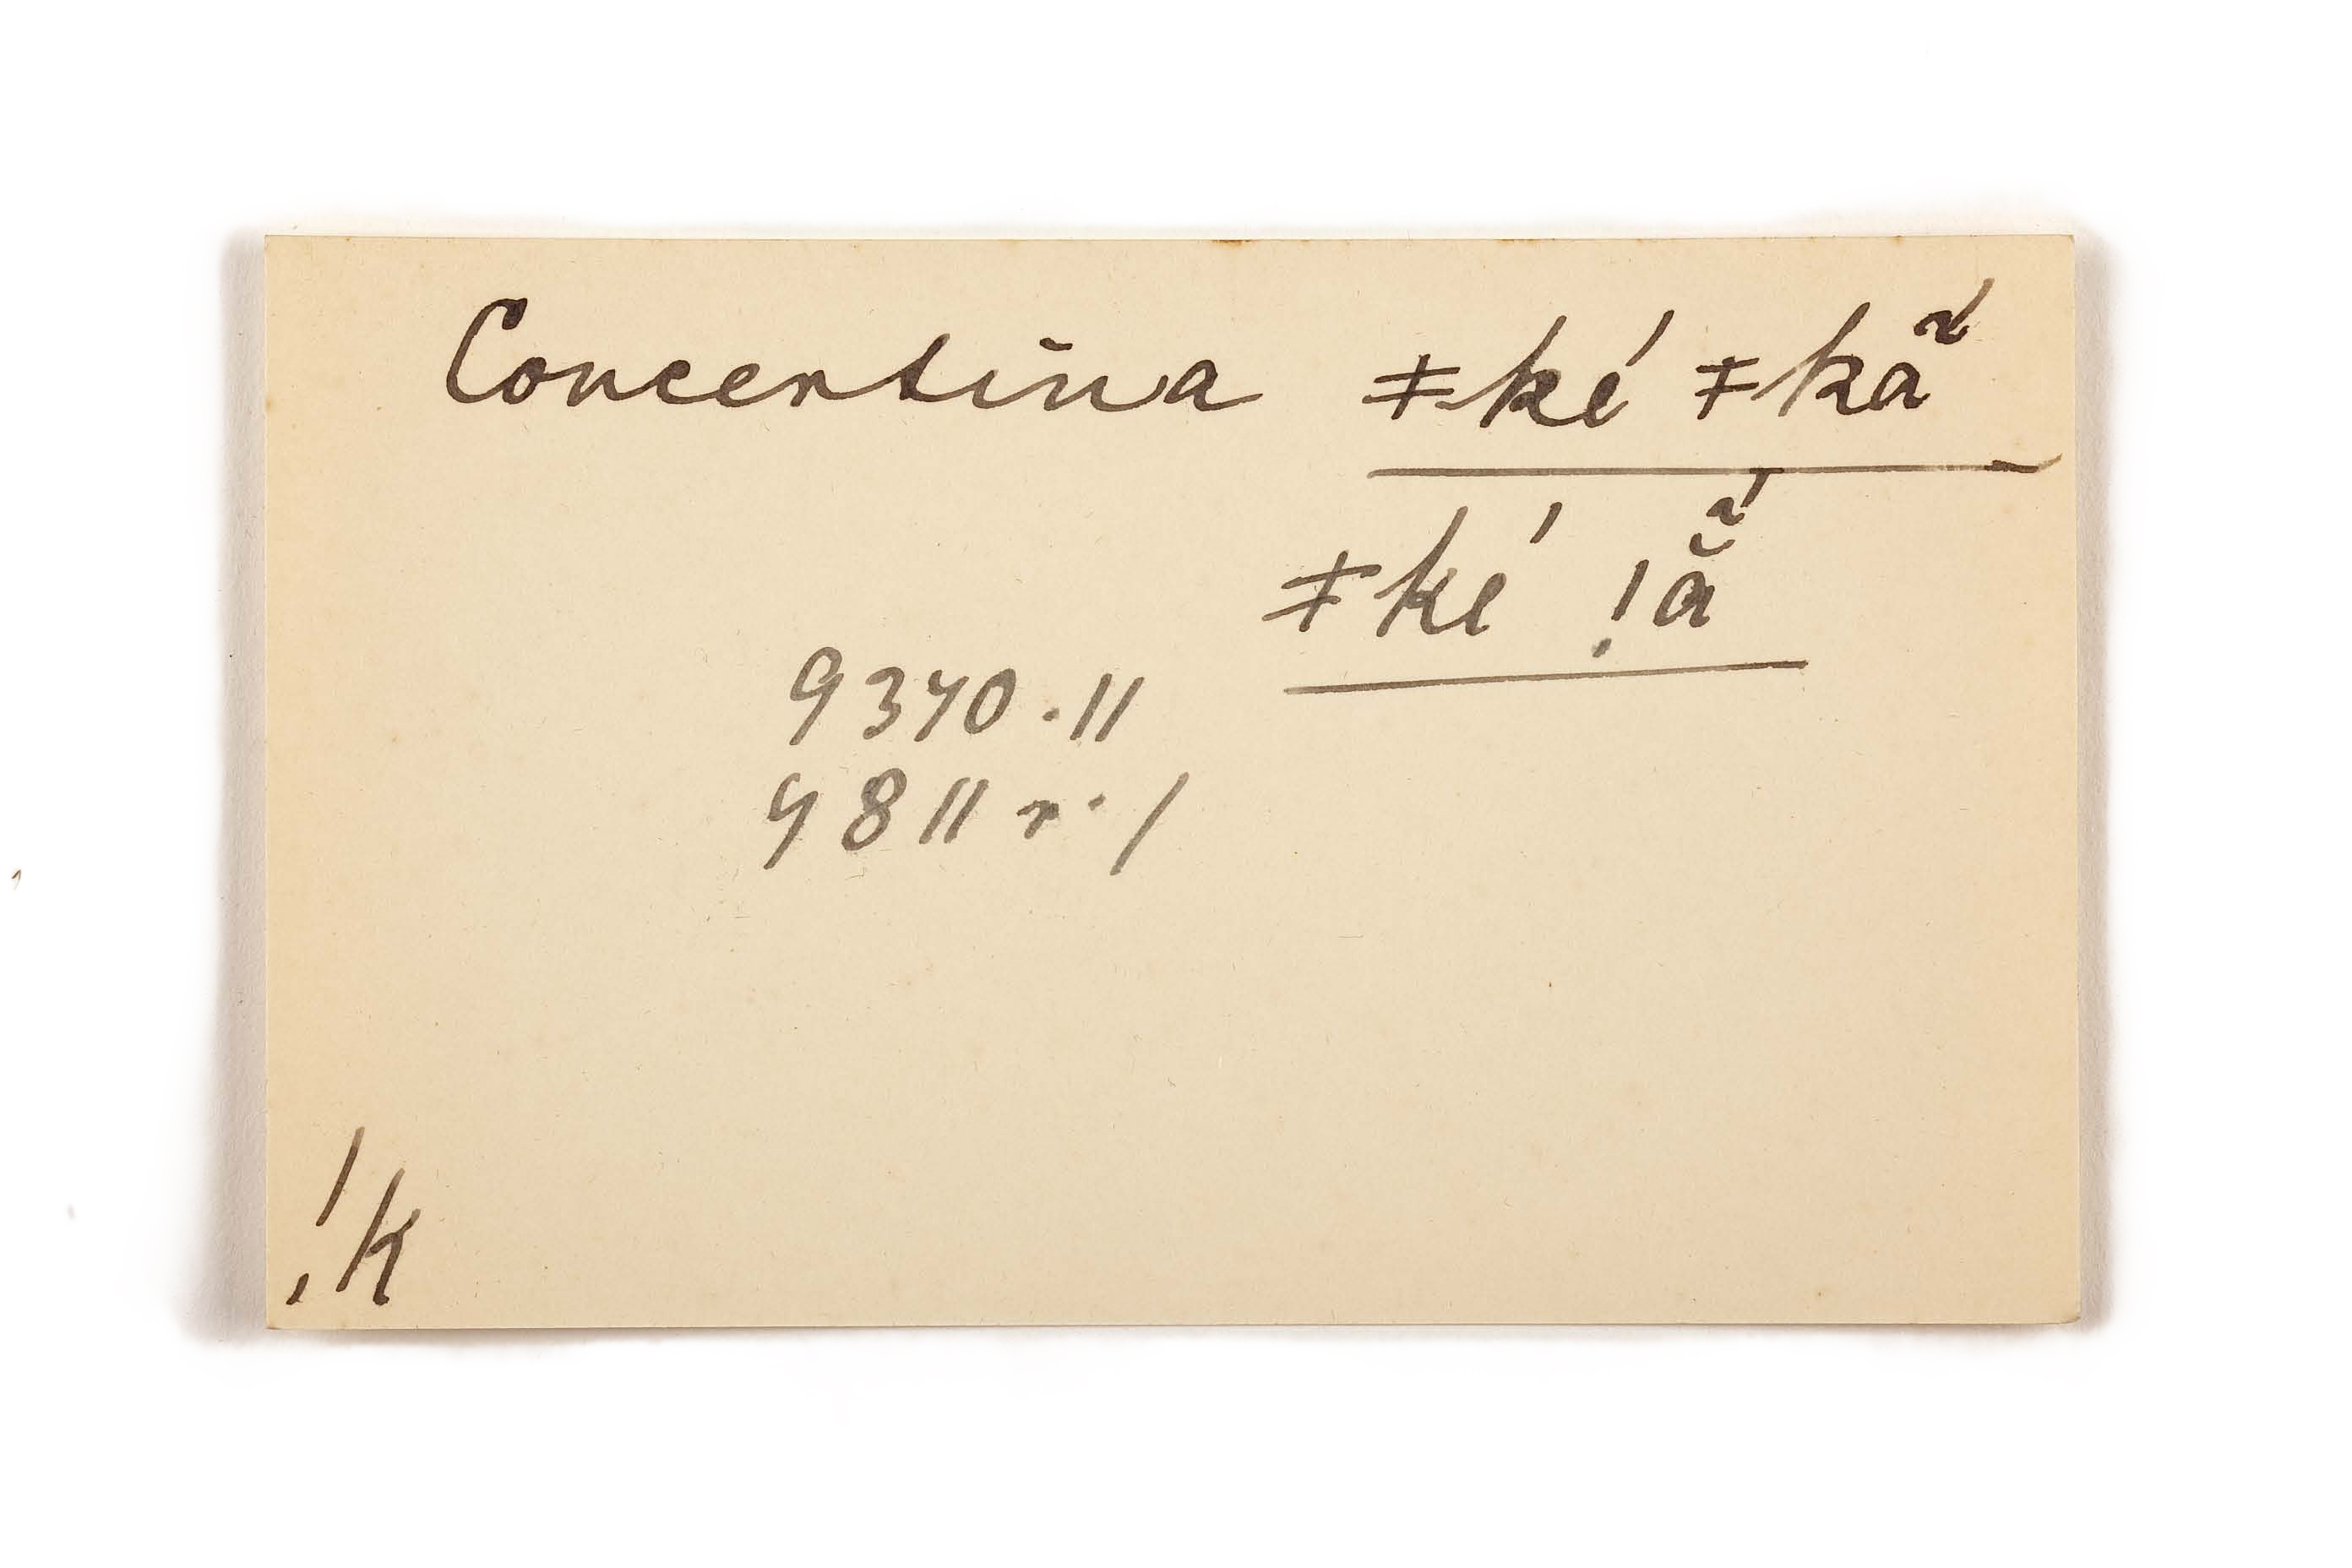 Concertina ǂké ǂkã́
ǂké !ã̆́
9370.11
9811 r. /
!k